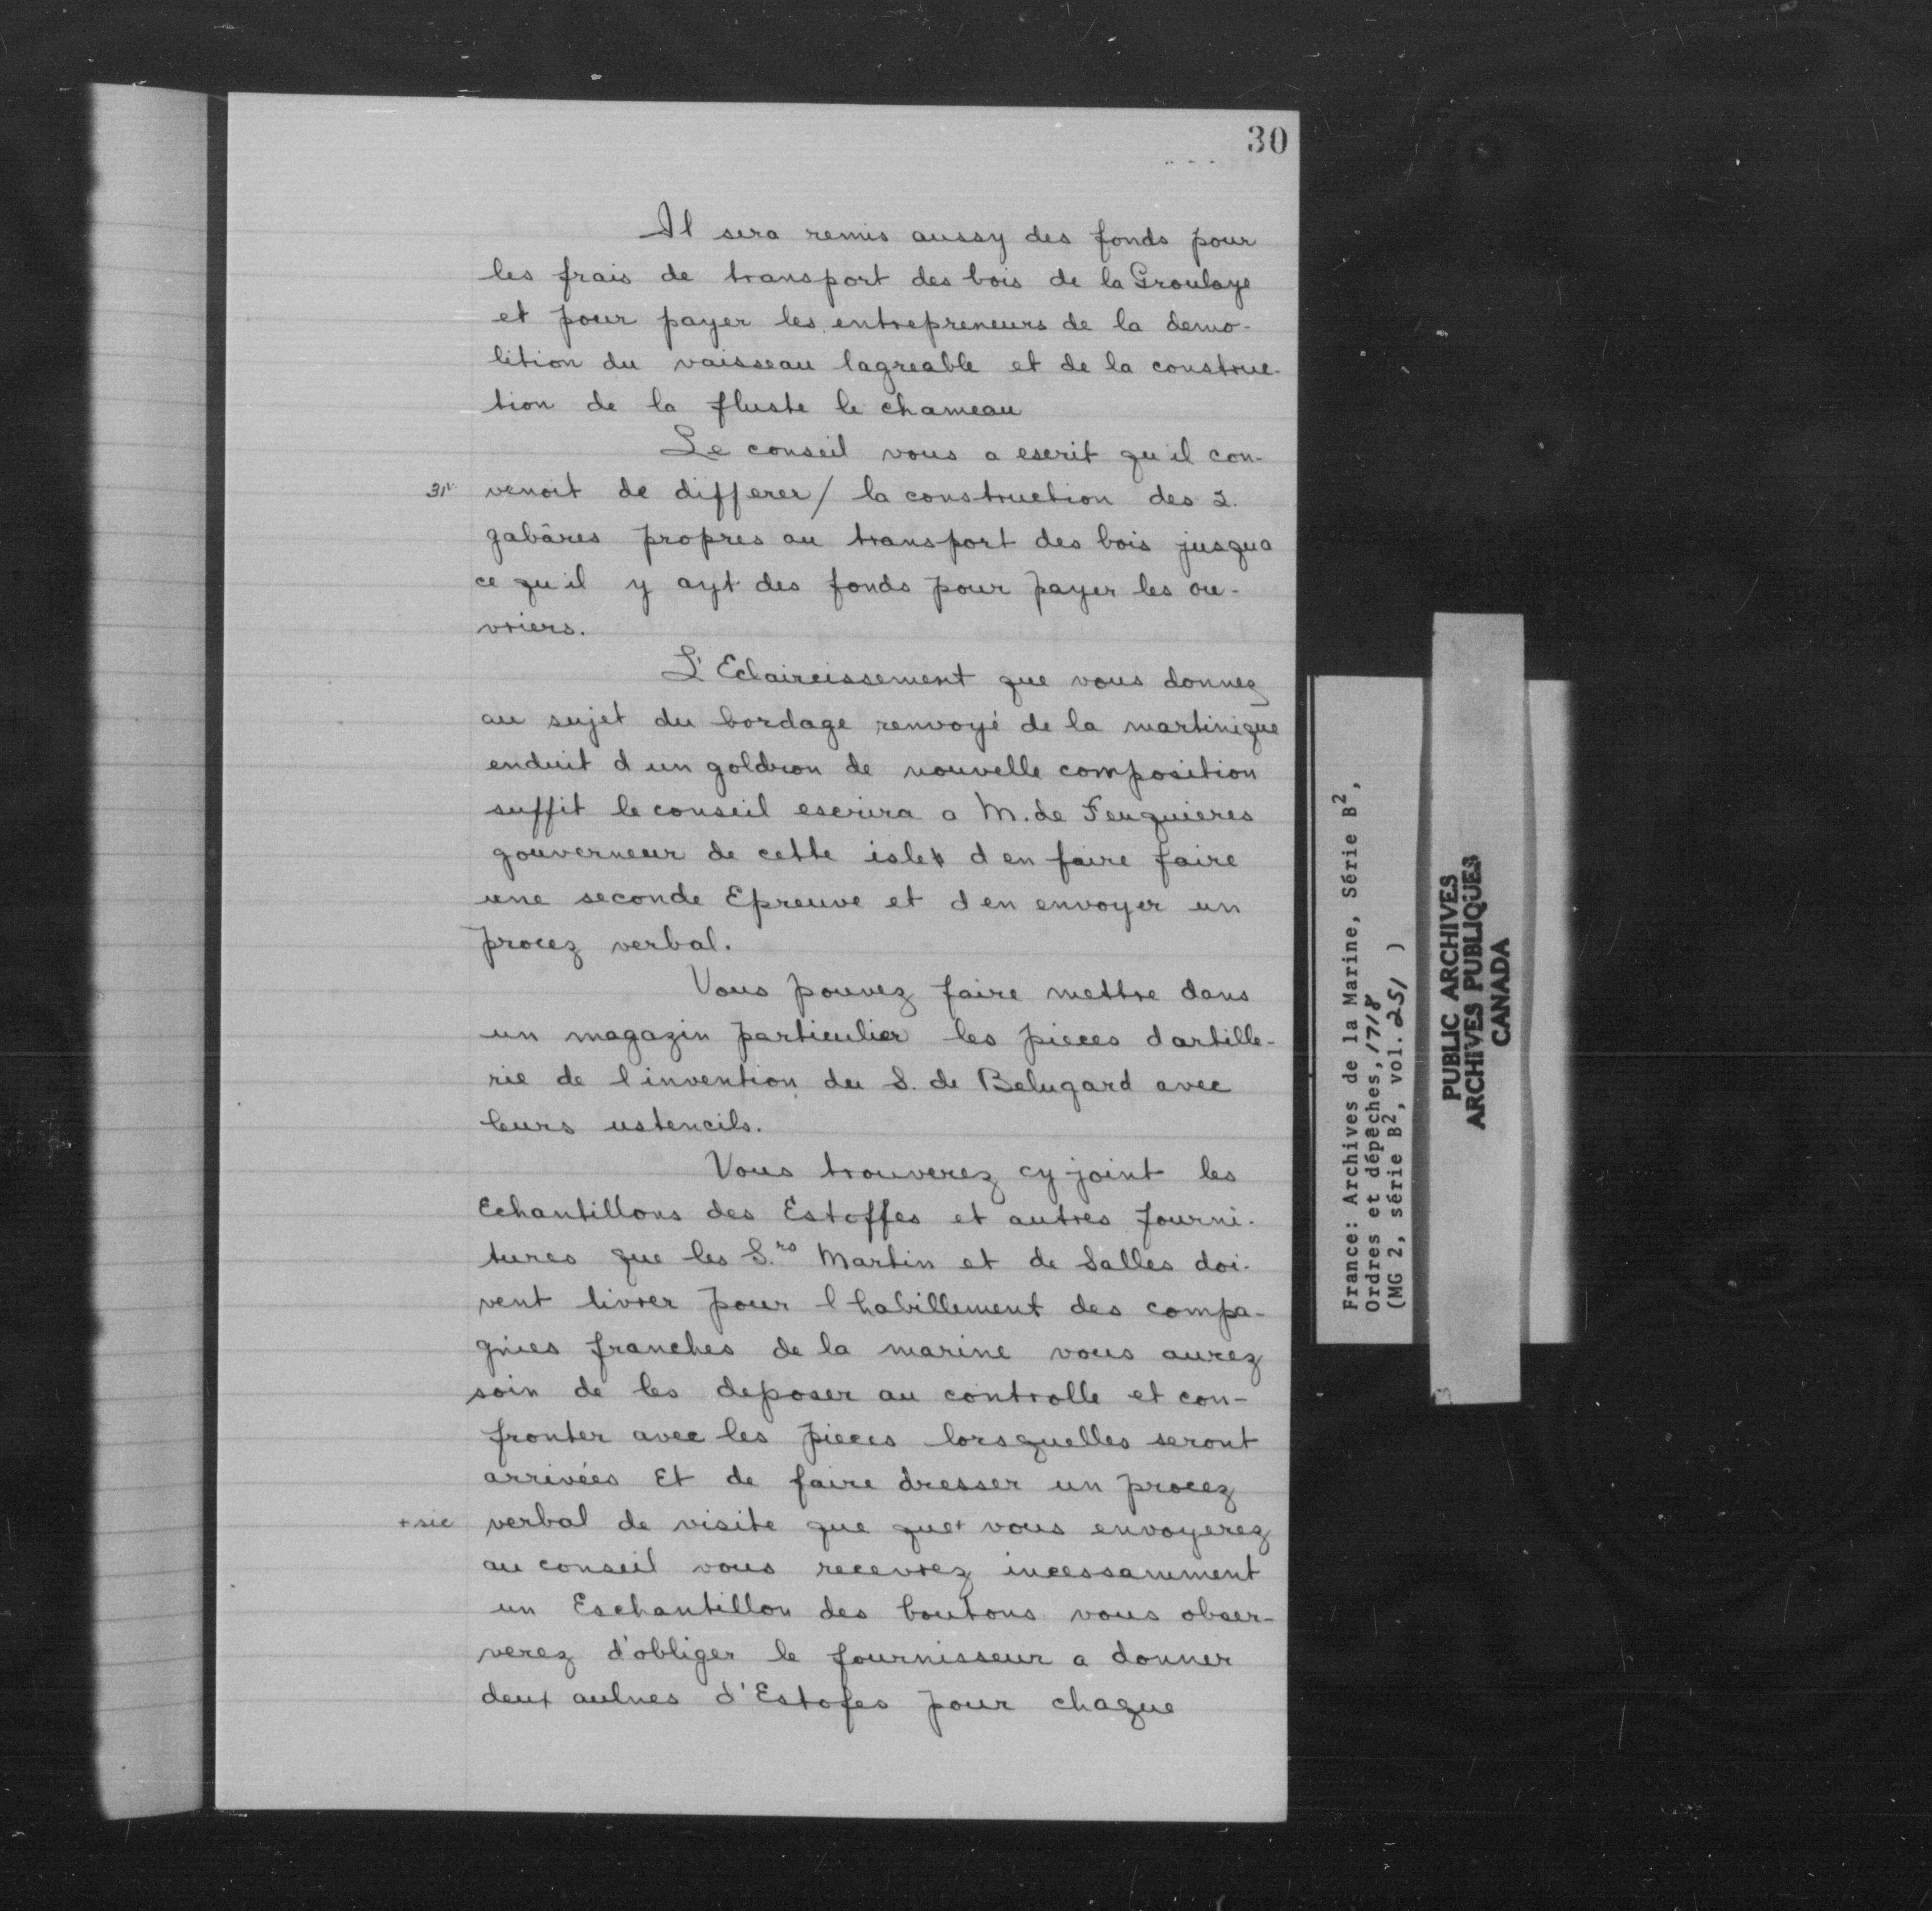 30
Il sera remis aussy des fonds pour
les frais de transport des bois de la Groulaye
et pour payer les entrepreneurs de la demo-
lition du vaisseau lagreable et de la construc-
tion de la fluste le chameau
Le conseil vous a escrit qu'il con-
venoit de differer / la construction des 2.
gabâres propres au transport des bois jusqua
ce qu'il y ayt des fonds pour payer les ou-
vriers.
L'Eclaircissement que vous donnez
au sujet du bordage renvoyé de la martinique
enduit d un goldron de nouvelle composition
suffit le conseil escrira a M. de Feuquieres
gouverneur de cette isle d en faire faire
une seconde Epreuve et d en envoyer un
procez verbal.
Vous pouvez faire mettre dans
un magazin particulier les pieces dartille-
rie de l invention du S. de Belugard avec
leurs ustencils.
Vous trouverez cy joint les
Echantillons des Estoffes et autres fourni-
tures que les S.rs Martin et de Salles doi-
vent livrer pour l habillement des compa-
gnies franches de la marine vous aurez
soin de les deposer au controlle et con-
fronter avec les pieces lorsquelles seront
arrivées Et de faire dresser un procez
+ sic verbal de visite que que+ vous envoyerez
au conseil vous recevrez incessamment
un Eschantillon des boutons vous obser-
verez d'obliger le fournisseur a donner
deux aulnes d'Estofes pour chaque
France: Archives de la Marine, Série B2,
Ordres et dépêches, 1718
(MG 2, série B2, vol. 251 )
PUBLIC ARCHIVES
ARCHIVES PUBLIQUES
CANADA